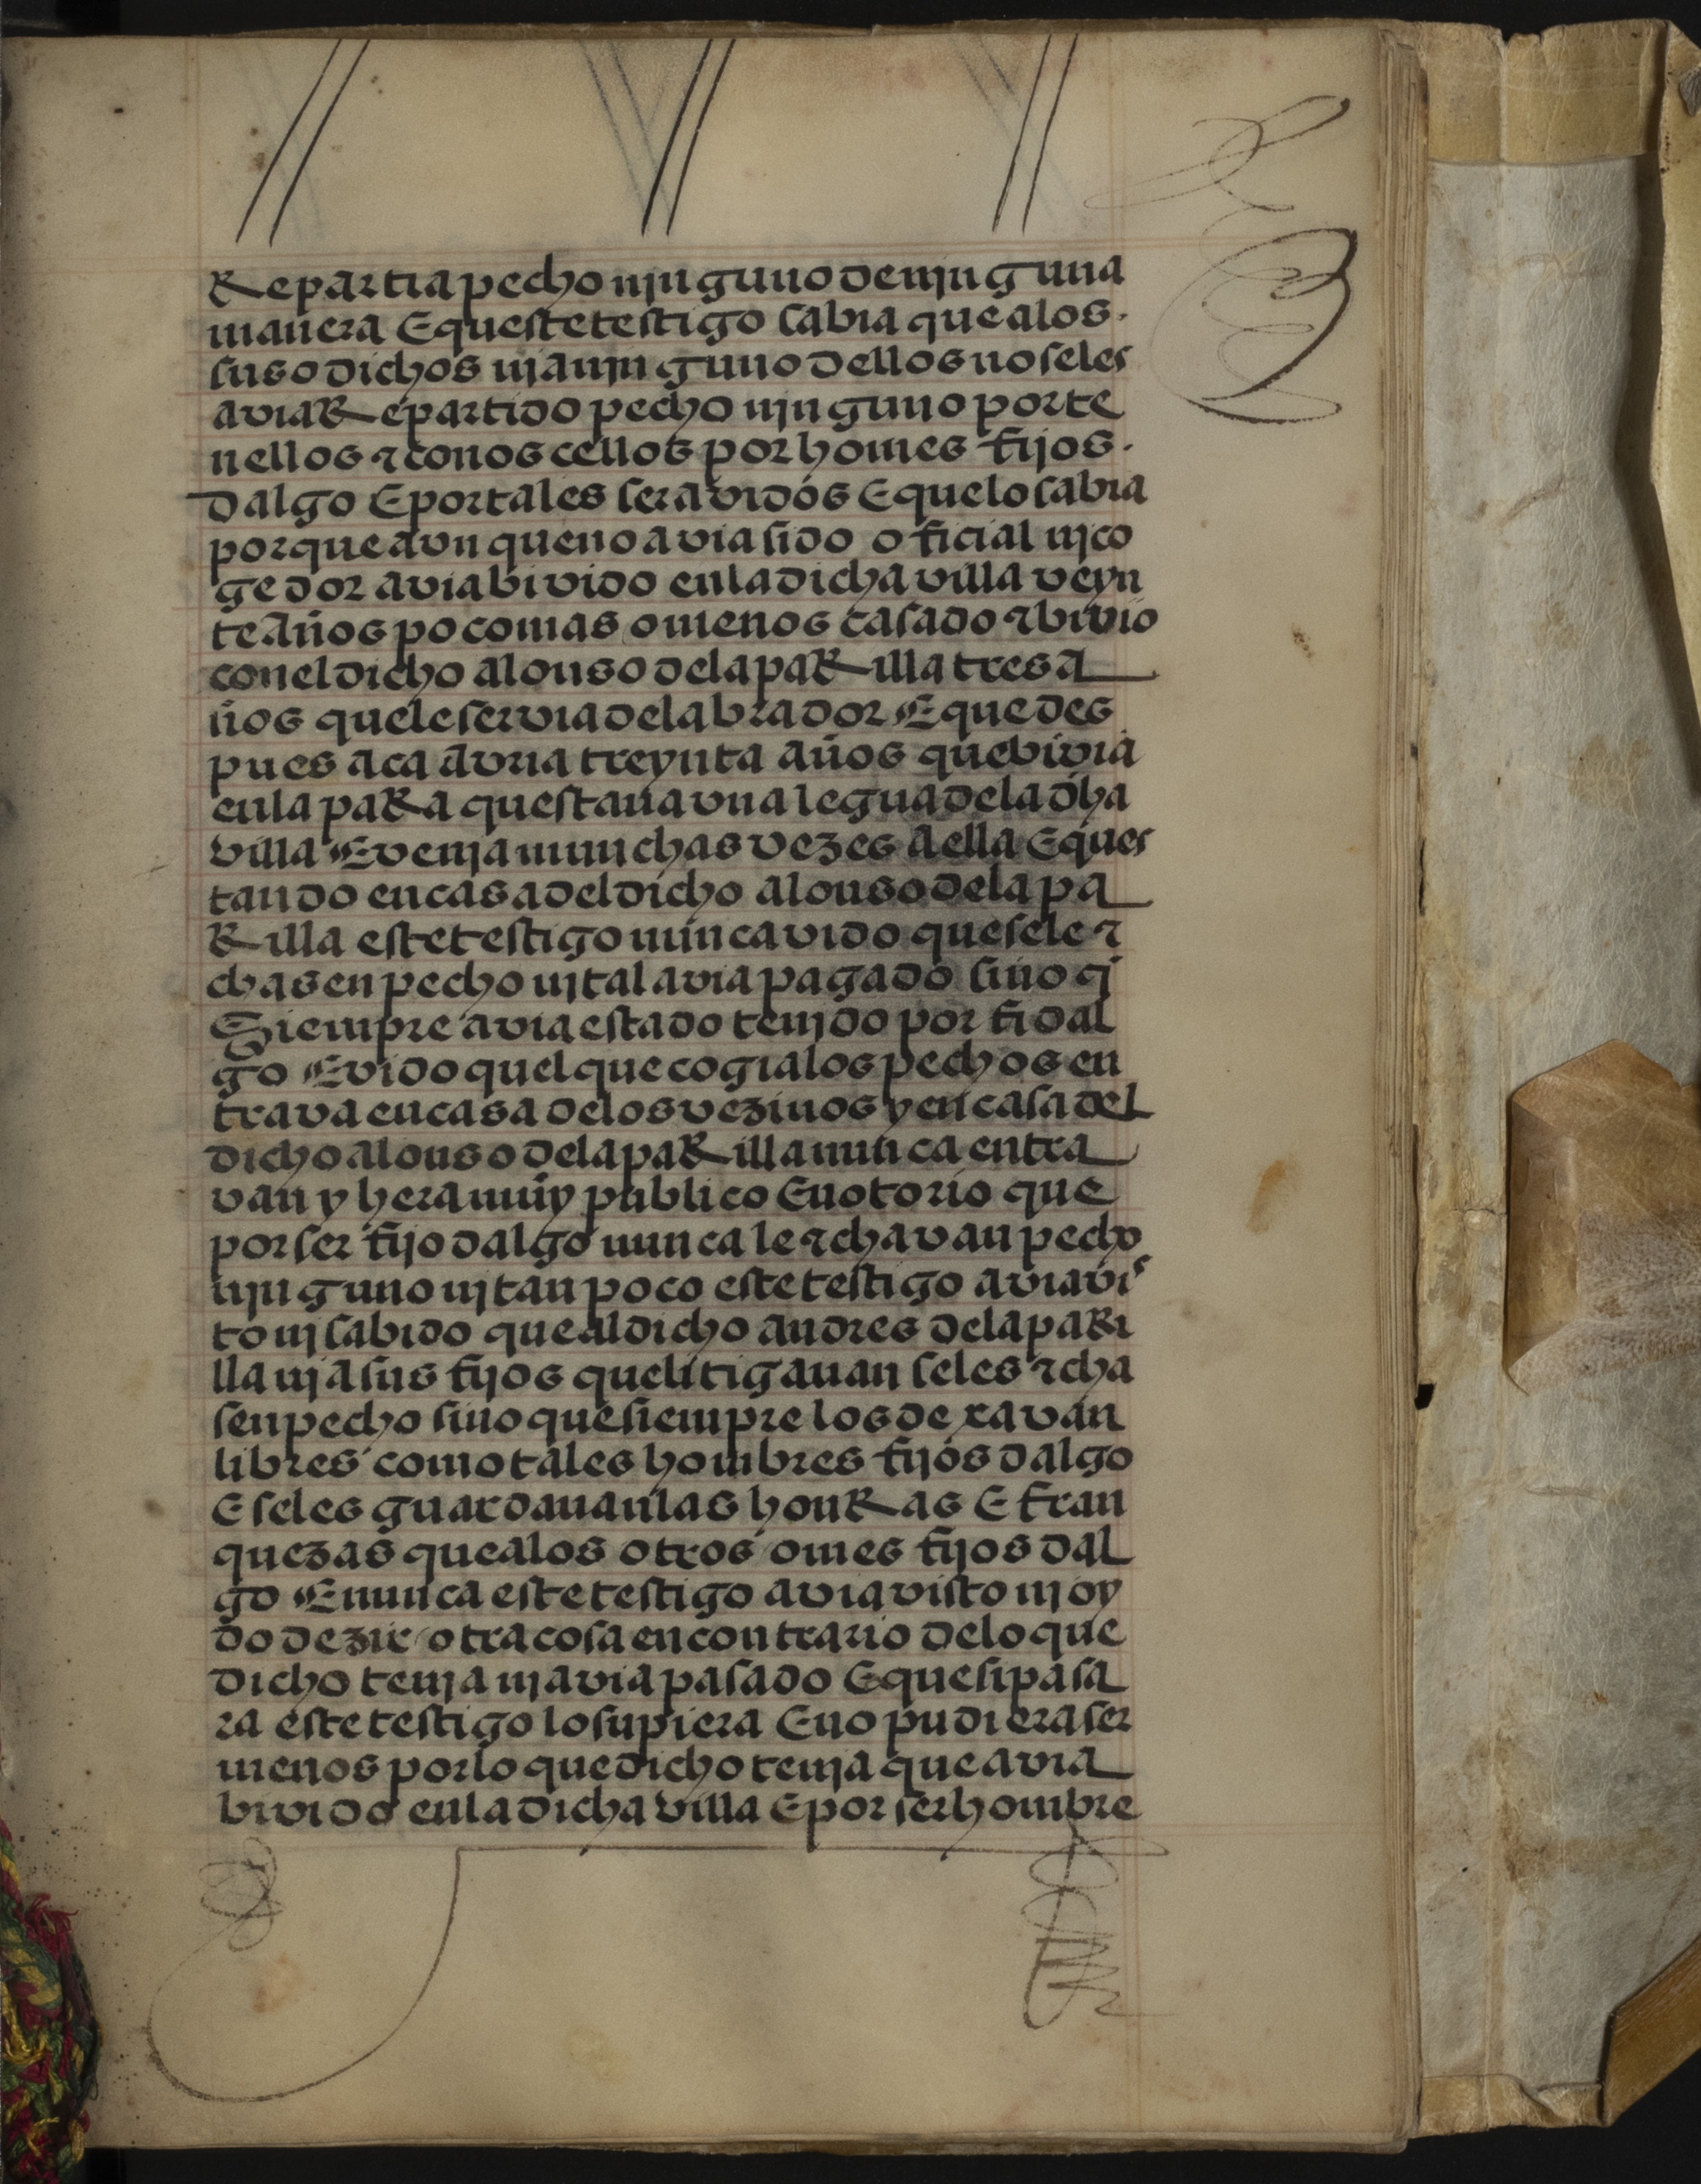 Repartia pecho njnguno de njnguna
manera E queste testigo sabia que a los.
suso dichos nj a njnguno dellos no se les
avia Repartido pecho njnguno por te
nellos ⁊ conoscellos por homes fijos.
dalgo E por tales ser avidos E que lo sabia
porque avn que no avia sido oficial nj co
gedor avia bivido en la dicha villa veyn
te años poco mas o menos casado ⁊ bivio
con el dicho alonso de la paRilla tres a
ños que le servia de labrador E que des
pues aca avria treynta años que bivia
en la paRa questaua vna legua de la dha
villa E venja munchas vezes a ella E ques
tando en casa del dicho alonso de la pa
Rilla este testigo nunca vido que se le ⁊
chasen pecho nj tal avia pagado sino q̃
Siempre avia estado tenjdo por fidal
go E vido quel que cogia los pechos en
trava en casa de los vezinos y en casa del
dicho alonso de la paRilla nunca entra
van y hera muy publico E notorio que
por ser fijo dalgo nunca le ⁊chavan pecho
njnguno nj tan poco este testigo avia vis
to nj sabido que al dicho andres de la paRi
lla nj a sus fijos que litigauan se les ⁊cha
sen pecho sino que siempre los dexavan
libres como tales hombres fijos dalgo
E se les guardauan las honRas E fran
quezas que a los otros omes fijos dal
go E nunca este testigo avia visto nj oy
do dezir otra cosa en contrario de lo que
dicho tenja nj avia pasado E que si pasa
ra este testigo lo supiera E no pudiera ser
menos por lo que dicho tenja que avia
bivido en la dicha villa E por ser hombre